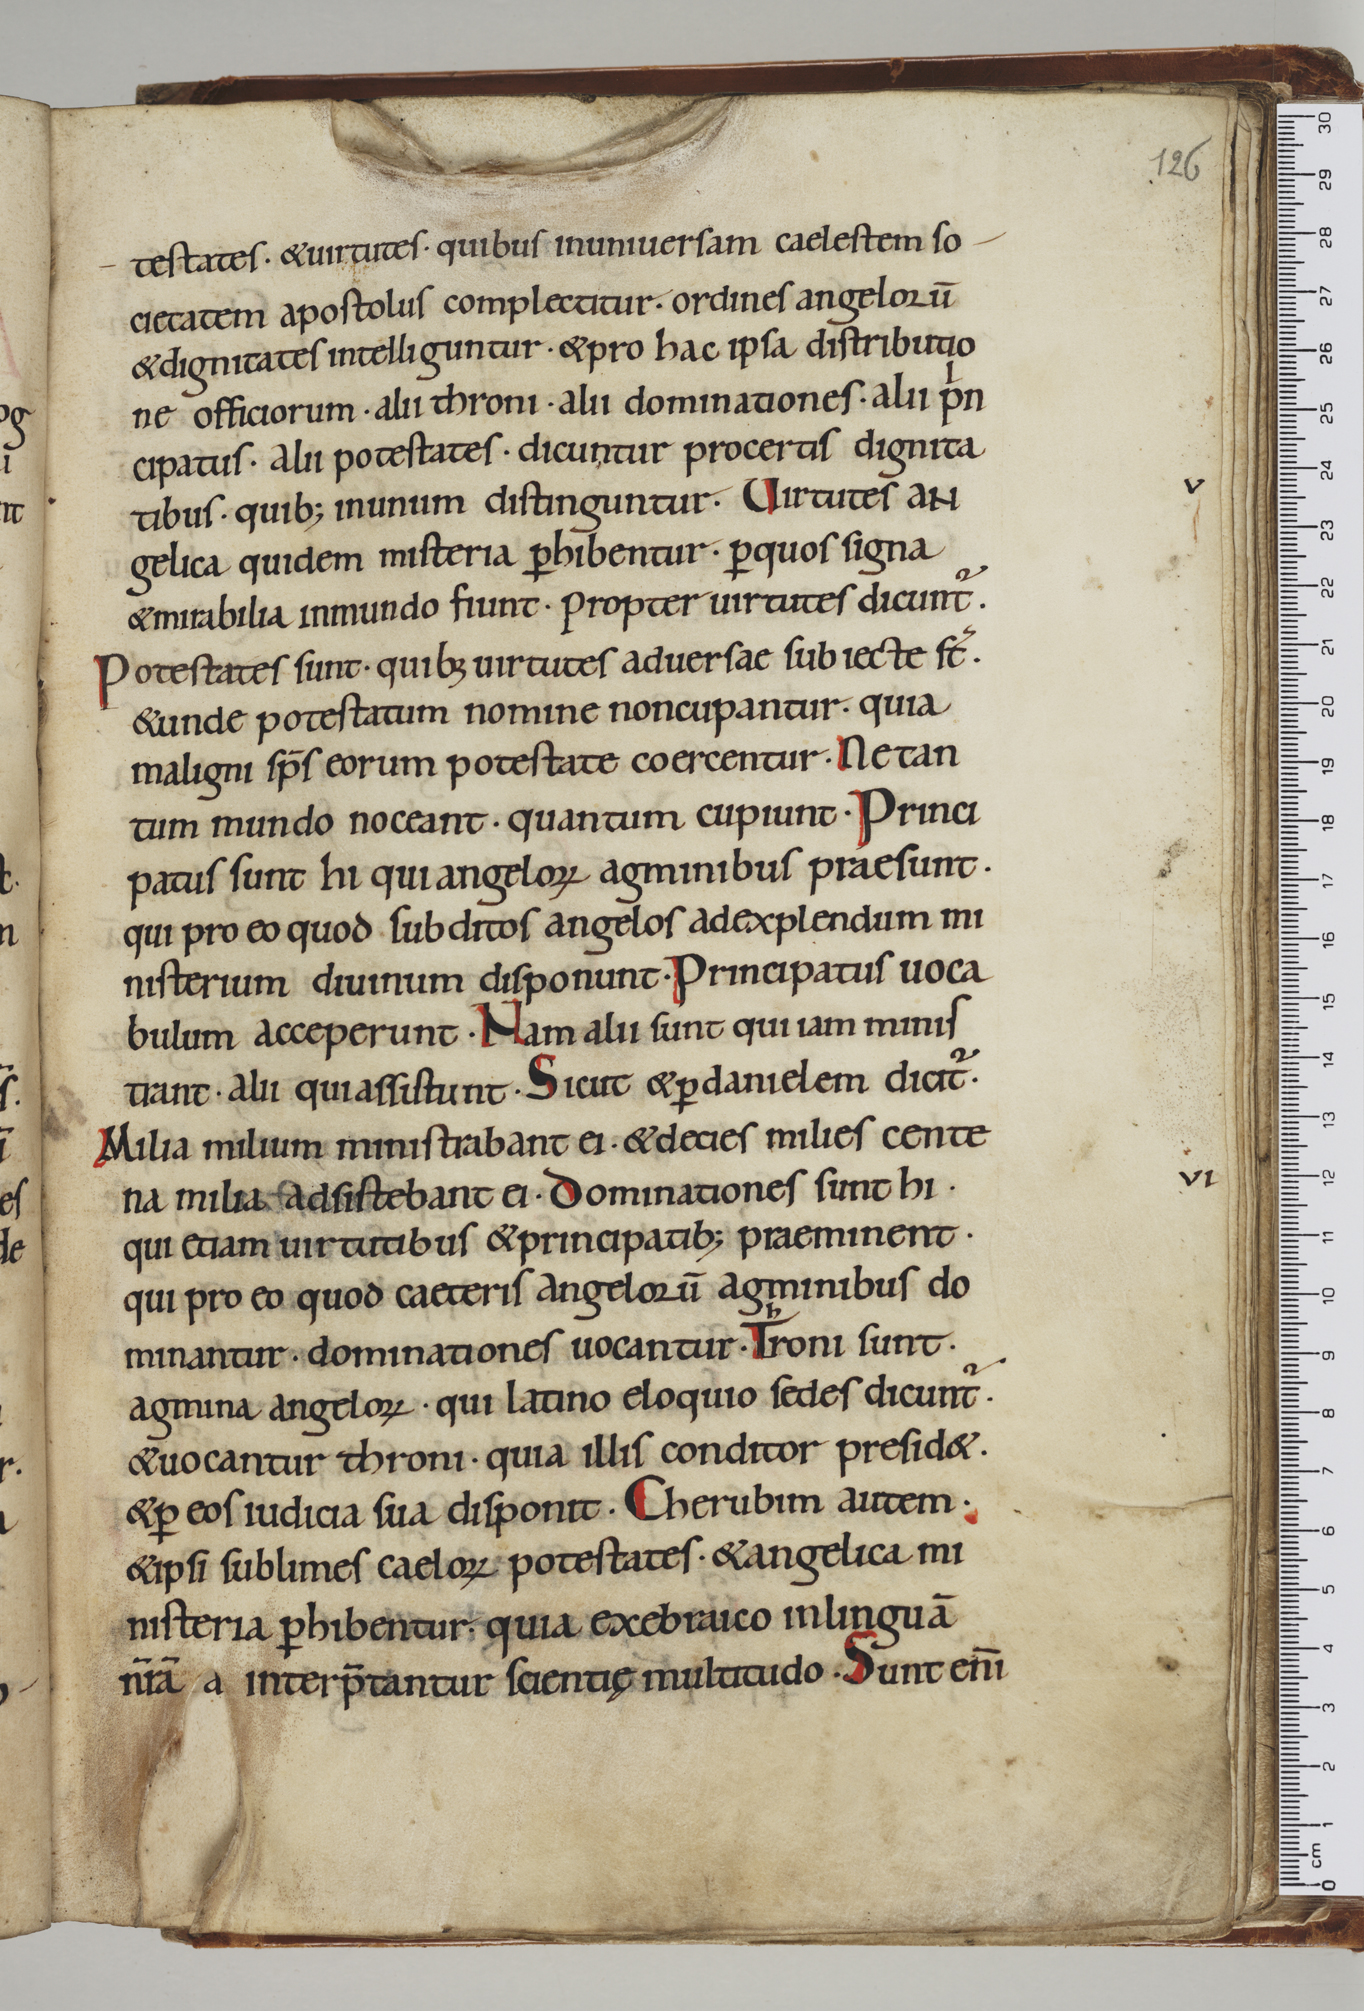 126
testates · &uirtutes · quibus inuniuersam caelestem so
cietatem apostolus complectitur · ordines angeloꝝ̄u
&dignitates intelliguntur · &pro hac ipsa distributio
ne officiorum · alii throni · alii dominationes · alii pͥn
cipatus · alii potestates · dicuntur procertis dignita
tibus · quib; inunum distinguntur · Uirtutes an
v
gelica quidem misteria ꝑhibentur · ꝑquos signa
&mirabilia inmundo fiunt · propter uirtutes dicunt᷑ .
Potestates sunt · quibꝫ uirtutes aduersae subiecte st̄ .
&unde potestatum nomine noncupantur · quia
maligni sp̄s eorum potestate coercentur · Ne tan
tum mundo noceant · quantum cupiunt · Princi
patus sunt hi qui angeloꝝ agminibus praesunt .
qui pro eo quod subditos angelos adexplendum mi
nisterium diuinum disponunt · Principatus uoca
bulum acceperunt · Nam alii sunt qui iam minis
trant · alii quiassistunt · Sicut &ꝑdanielem dicit᷑ .
Milia milium ministrabant ei · &decies milies cente
na milia adsistebant ei · Dominationes sunt hi ·
vi
qui etiam uirtutibus &principatib; praeminent ·
qui pro eo quod caeteris angelorū agminibus do
minantur · dominationes uocantur · Tʰroni sunt ·
agmina angeloꝝ · qui latino eloquio sedes dicunt᷑ .
&uocantur throni · quia illis conditor presid& .
&ꝑ eos iudicia sua disponit · Cherubim autem ·
&ipsi sublimes caeloꝝ potestates · &angelica mi
nisteria ꝑhibentur · quia exebraico inlinguā
nr̄ā a interp̄tantur scientię multitudo · Sunt eni̅